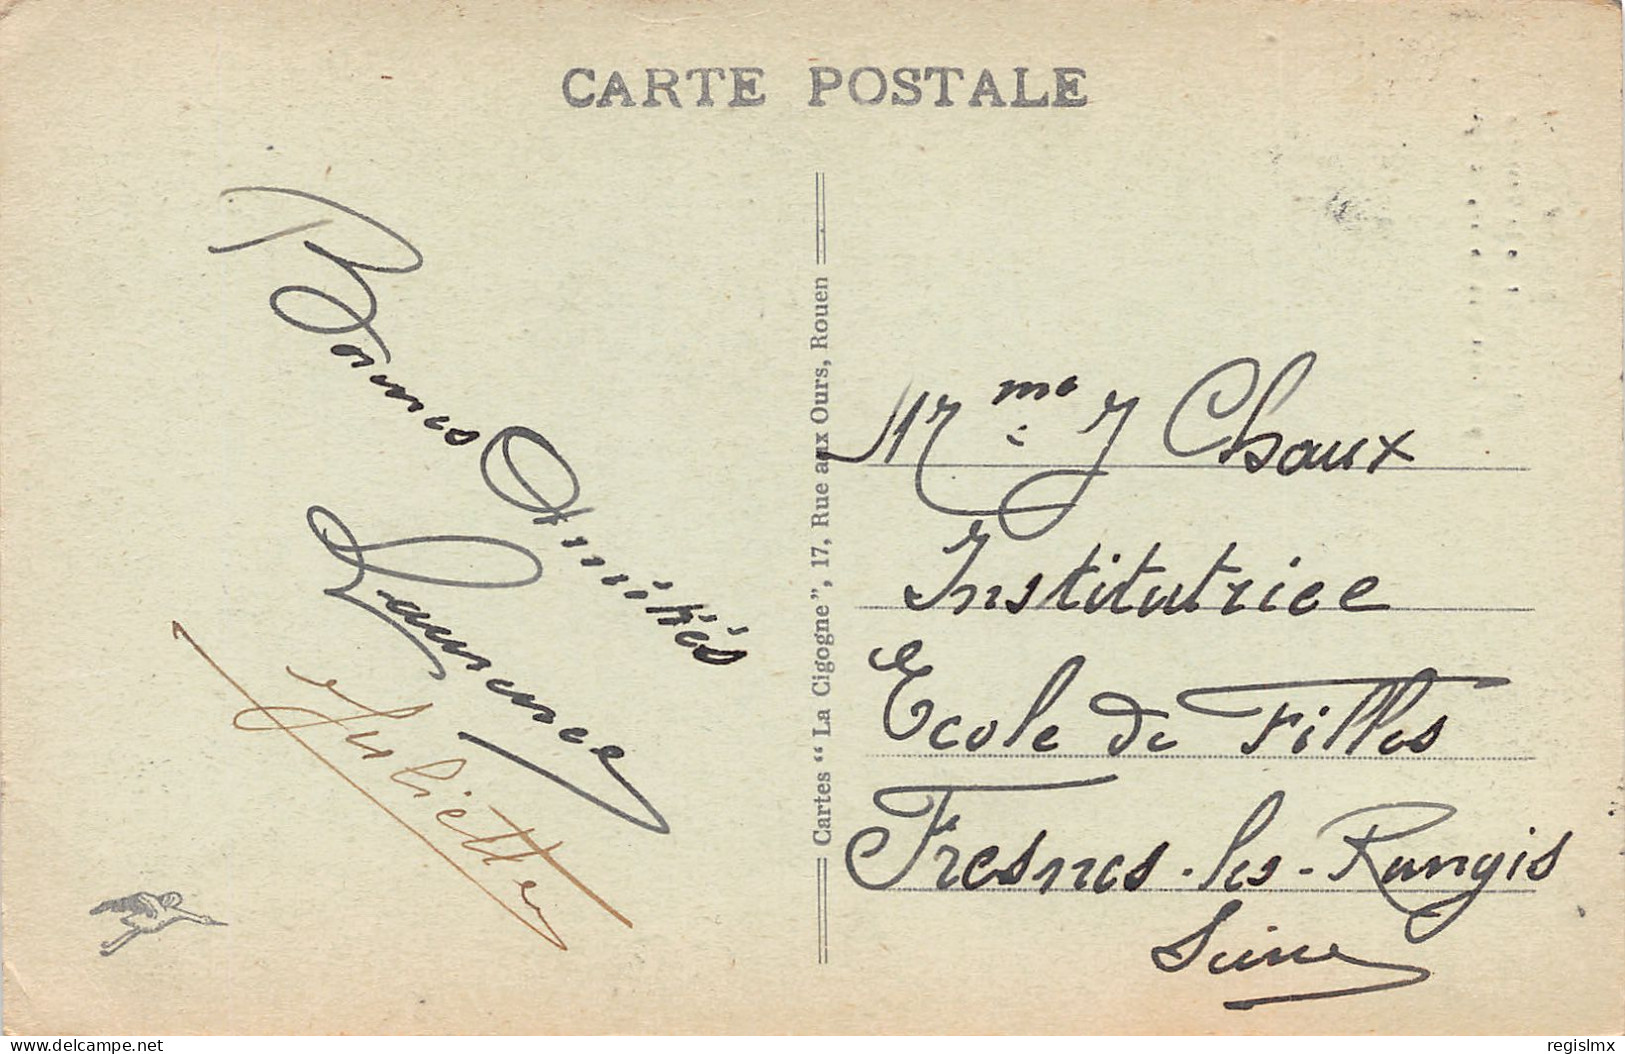 CARTE POSTALE
Bonnes Amitiés
Laurence
Juliette
Cartes “La Cigogne”, 17, Rue aux Ours, Rouen
Mme J Chaux
Institutrice
Ecole de Filles
Fresnes-les-Rungis
Seine
delcampe.net
regislmx